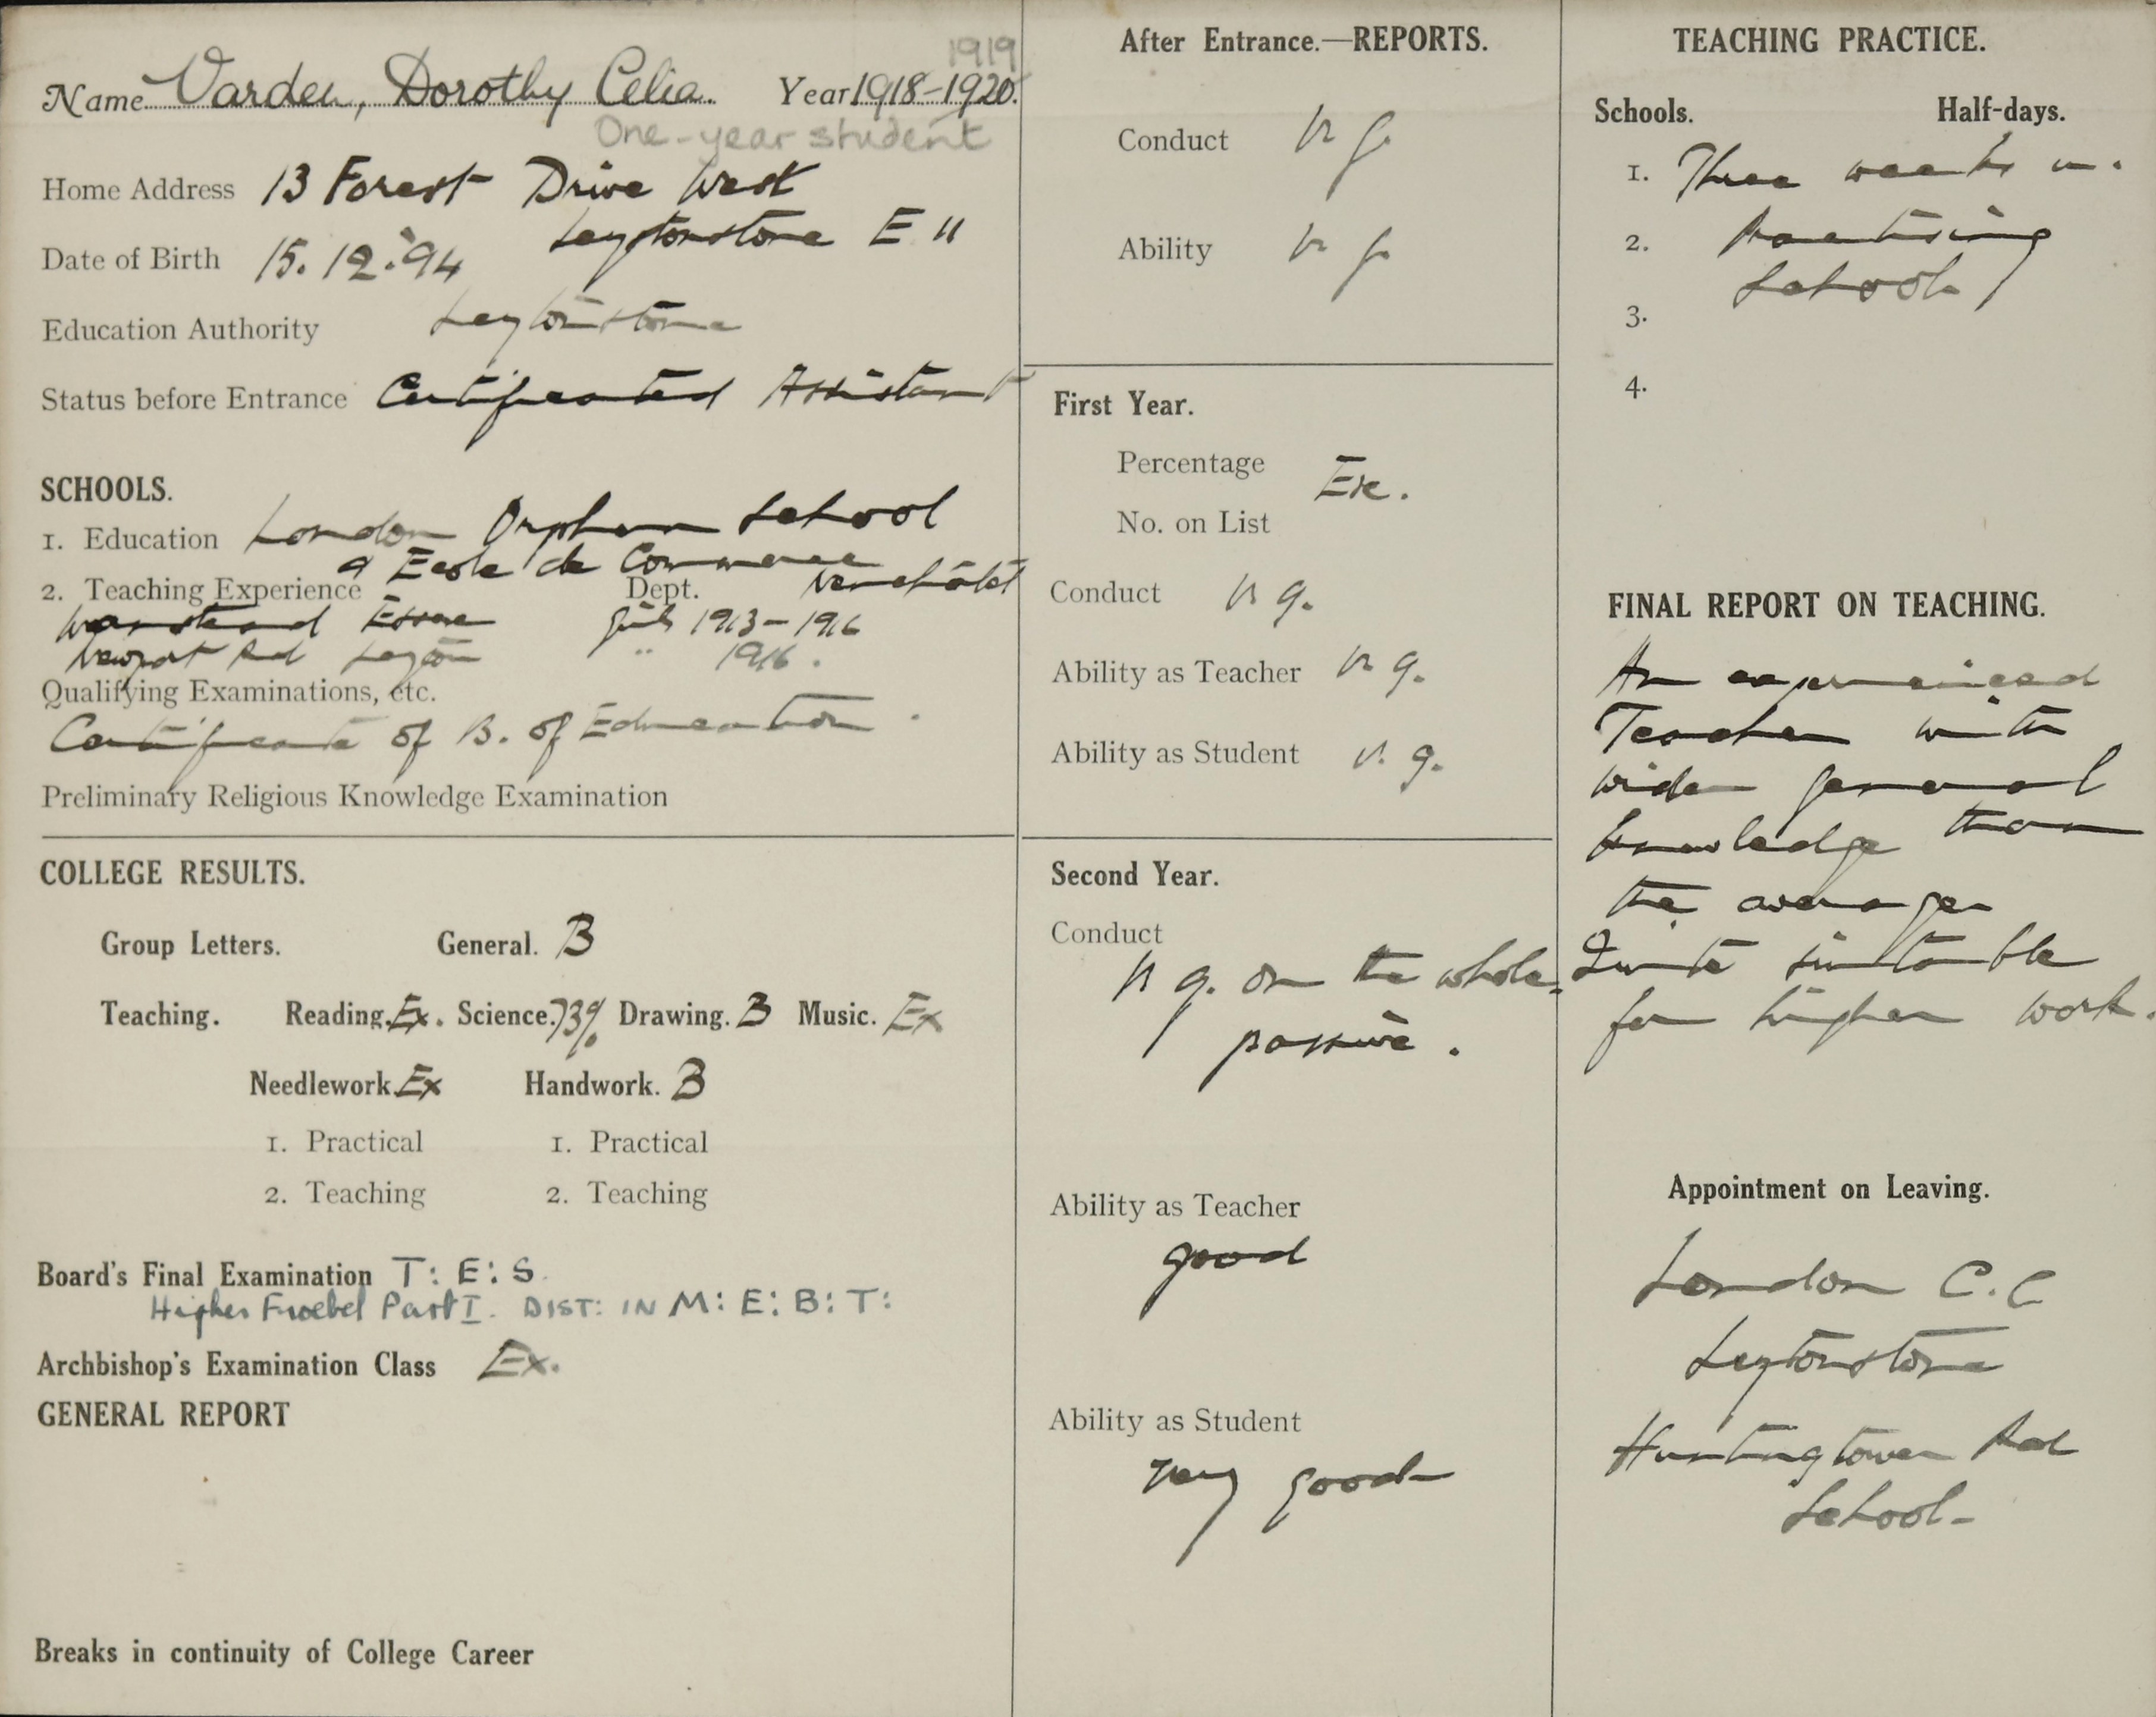 1919
Name Varden, Dorothy Celia. Year 1918-1920.
One-year student
Home Address 13 Forest Drive West
Leytonstone E 11
Date of Birth 15.12.94
Education Authority Leytonstone
Status before Entrance Certificated Assistant
SCHOOLS.
1. Education London Orphan School
& Ecole de Commerce
2. Teaching Experience Dept. Neuchâtel
Wanstead Essex Girls 1913-1916
Newport Rd Leyton " 1916.
Qualifying Examinations, etc.
Certificate of B. of Education.
Preliminary Religious Knowledge Examination
COLLEGE RESULTS.
Group Letters. General. B
Teaching. Reading. Ex. Science. 73% Drawing. B Music. Ex
Needlework. Ex Handwork. B
1. Practical 1. Practical
2. Teaching 2. Teaching
Board's Final Examination T: E: S.
Higher Froebel Part I. DIST: IN M: E: B: T:
Archbishop's Examination Class Ex.
GENERAL REPORT
Breaks in continuity of College Career
After Entrance.—REPORTS.
Conduct v g.
Ability v g.
First Year.
Percentage
Ex.
No. on List
Conduct v g.
Ability as Teacher v g.
Ability as Student v. g.
Second Year.
Conduct
v g. on the whole.
passive.
Ability as Teacher
good
Ability as Student
very good
TEACHING PRACTICE.
Schools. Half-days.
1. Three weeks in
2. Practising
School
3.
4.
FINAL REPORT ON TEACHING.
An experienced
Teacher with
wider general
knowledge than
the average
Quite suitable
for higher work.
Appointment on Leaving.
London C.C
Leytonstone
Huntingtower Rd
School-